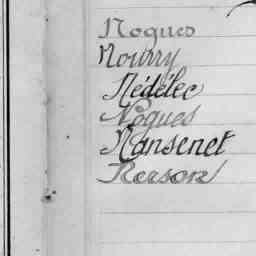 Nogues
Nourry
Nédélec
Nogues
Nansenet